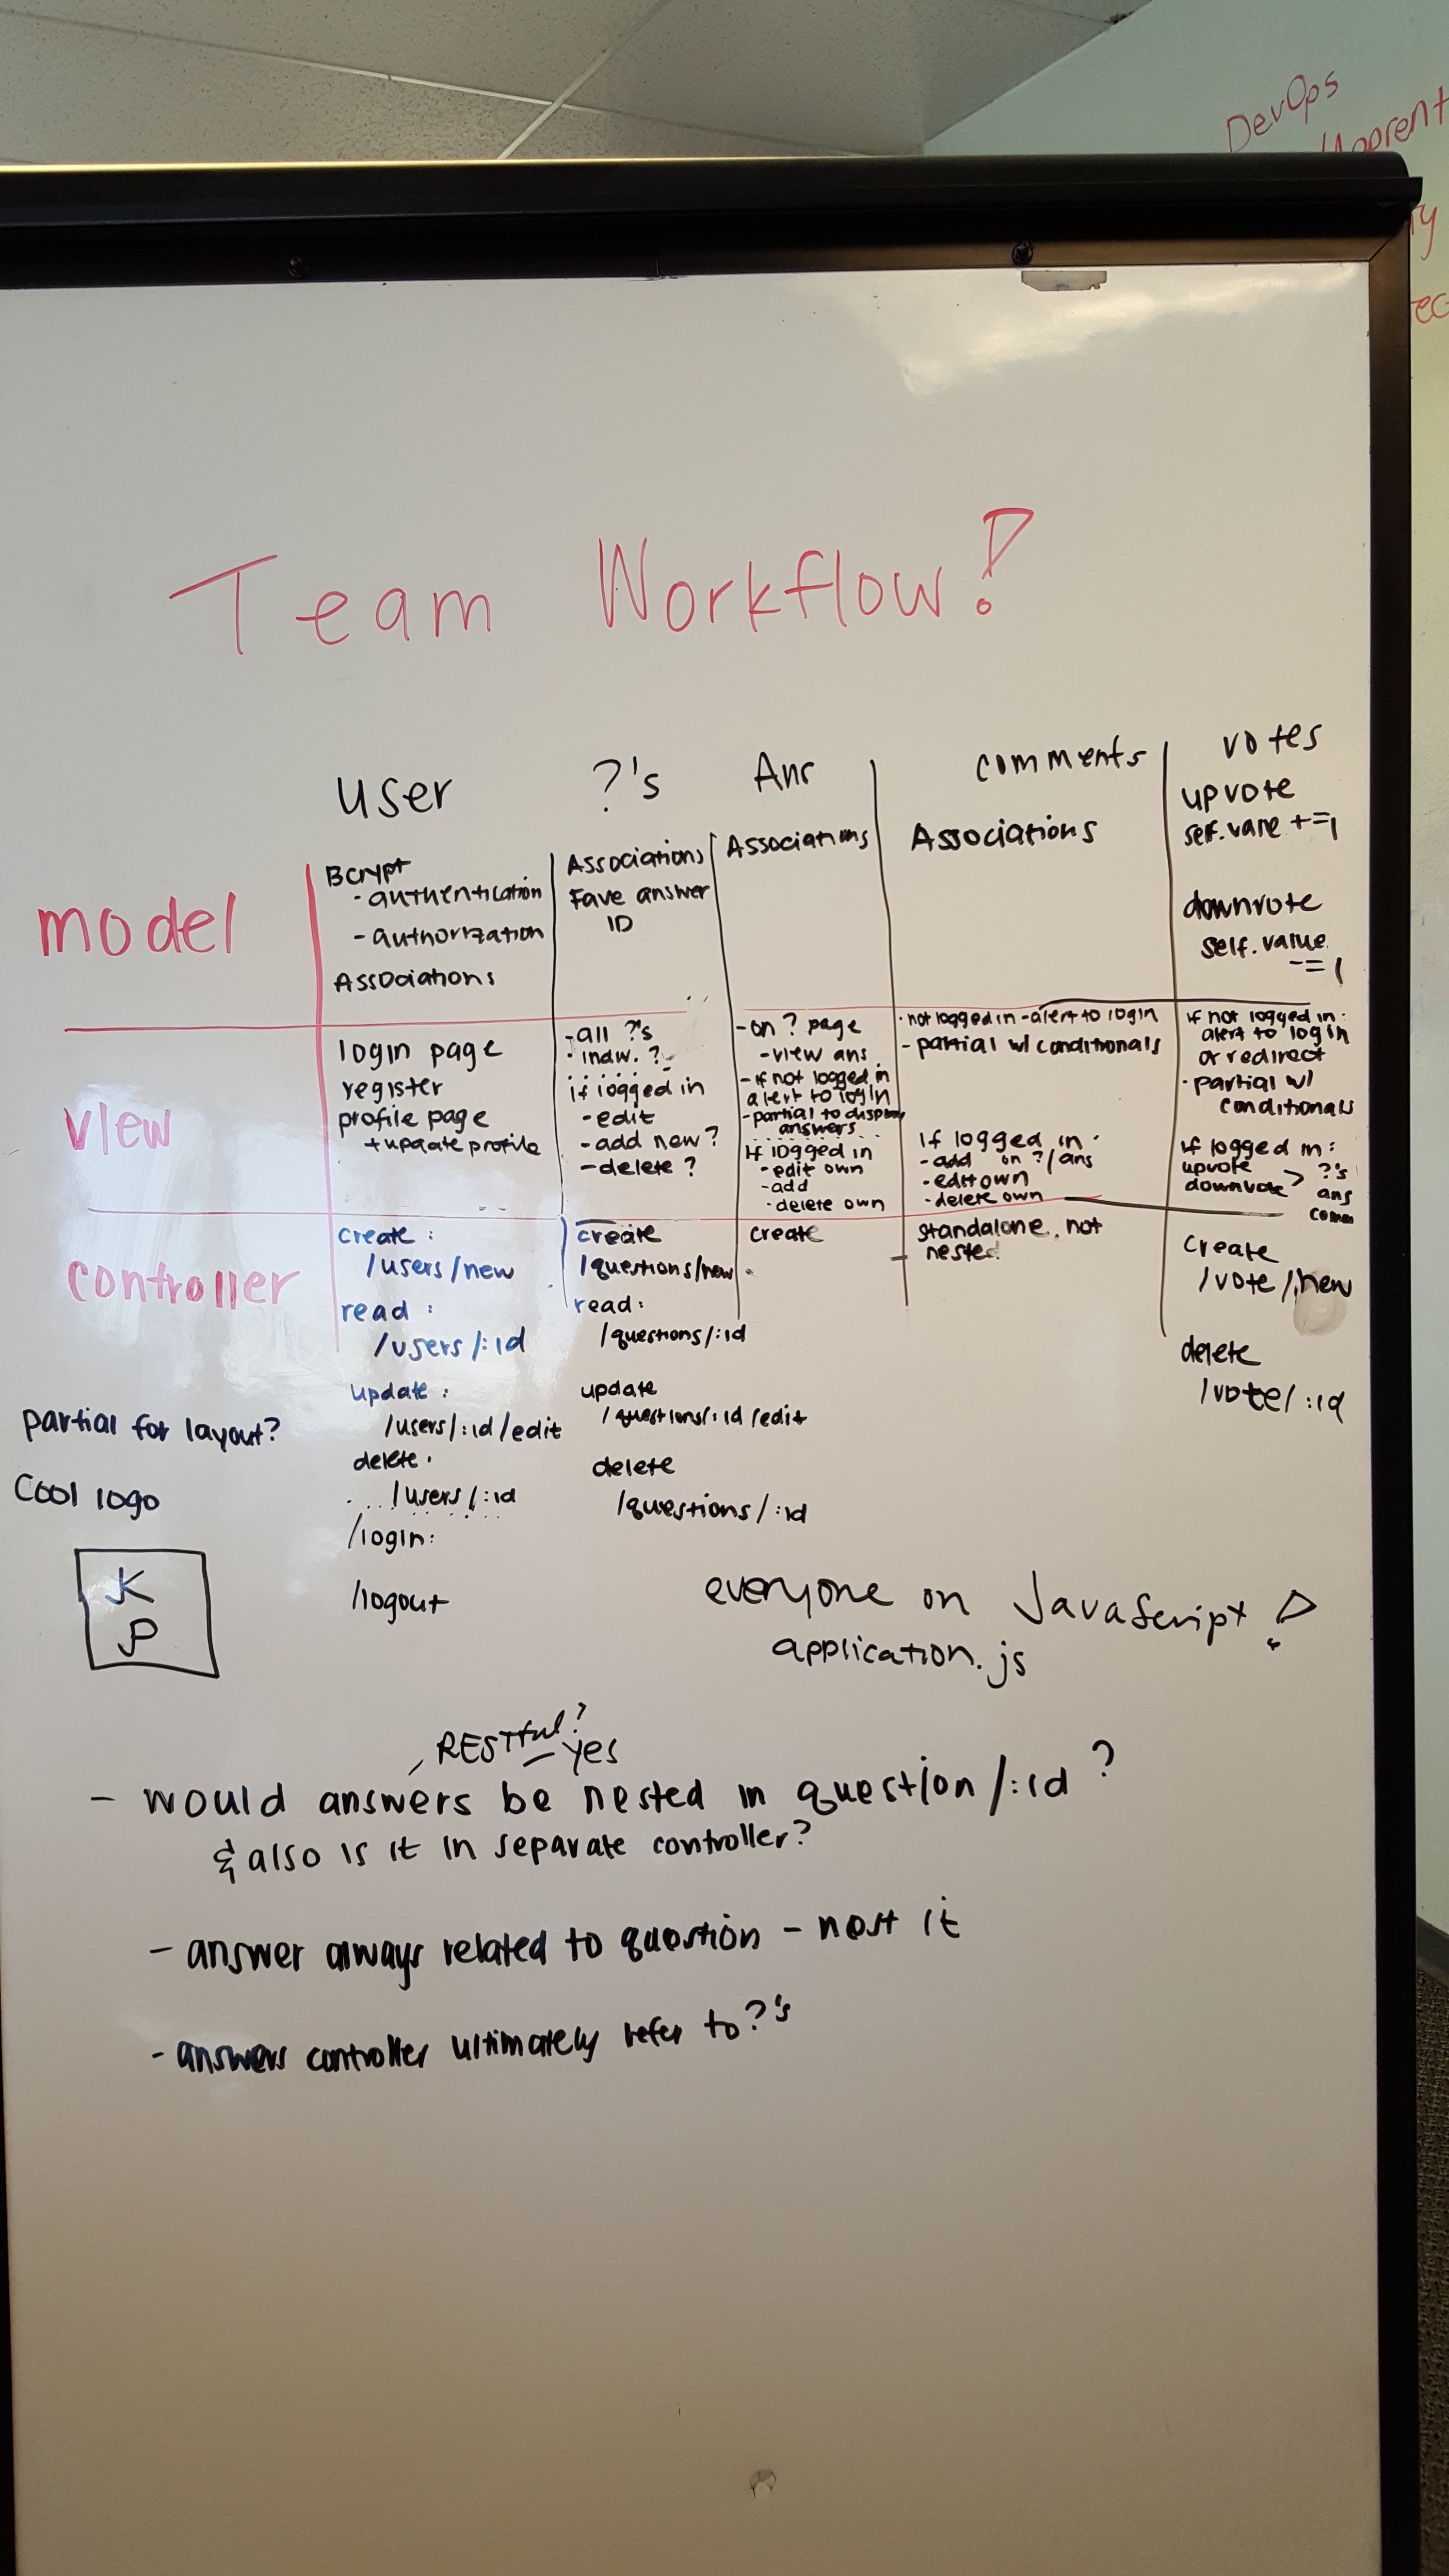 DevOps
Team Workflow!
user
?'s
Anr
comments
votes
model
Bcrypt
- authentication
- authorization
Associations
Associations
Fave answer
ID
Associations
Associations
upvote
+=1
downvote
self.value
-=1
view
login page
register
profile page
+update profile
-all ?'s
- indiv. ?
if logged in
- edit
- add new?
- delete ?
- on ? page
- view ans
- if not logged in
alert to login
- partial to display
answers
If logged in
- edit own
- add
- delete own
- not logged in - alert to login
- partial w/ conditionals
If logged in
- add on ?/ans
- edit own
- delete own
If not logged in:
alert to log in
or redirect
- partial w/
conditionals
If logged in:
upvote
downvote > ?'s
ans
comm
controller
create:
/users/new
read:
/users/:id
update:
/users/:id/edit
delete:
/users/:id
/login:
/logout
create
/questions/new
read:
/questions/:id
update
/questions/:id/edit
delete
/questions/:id
create
standalone, not
nested
create
/vote/new
delete
/vote/:id
partial for layout?
Cool logo
JK
JP
everyone on JavaScript!
application.js
RESTful? - yes
- would answers be nested in question/:id?
& also is it in separate controller?
- answer always related to question - nest it
- answers controller ultimately refer to ?'s